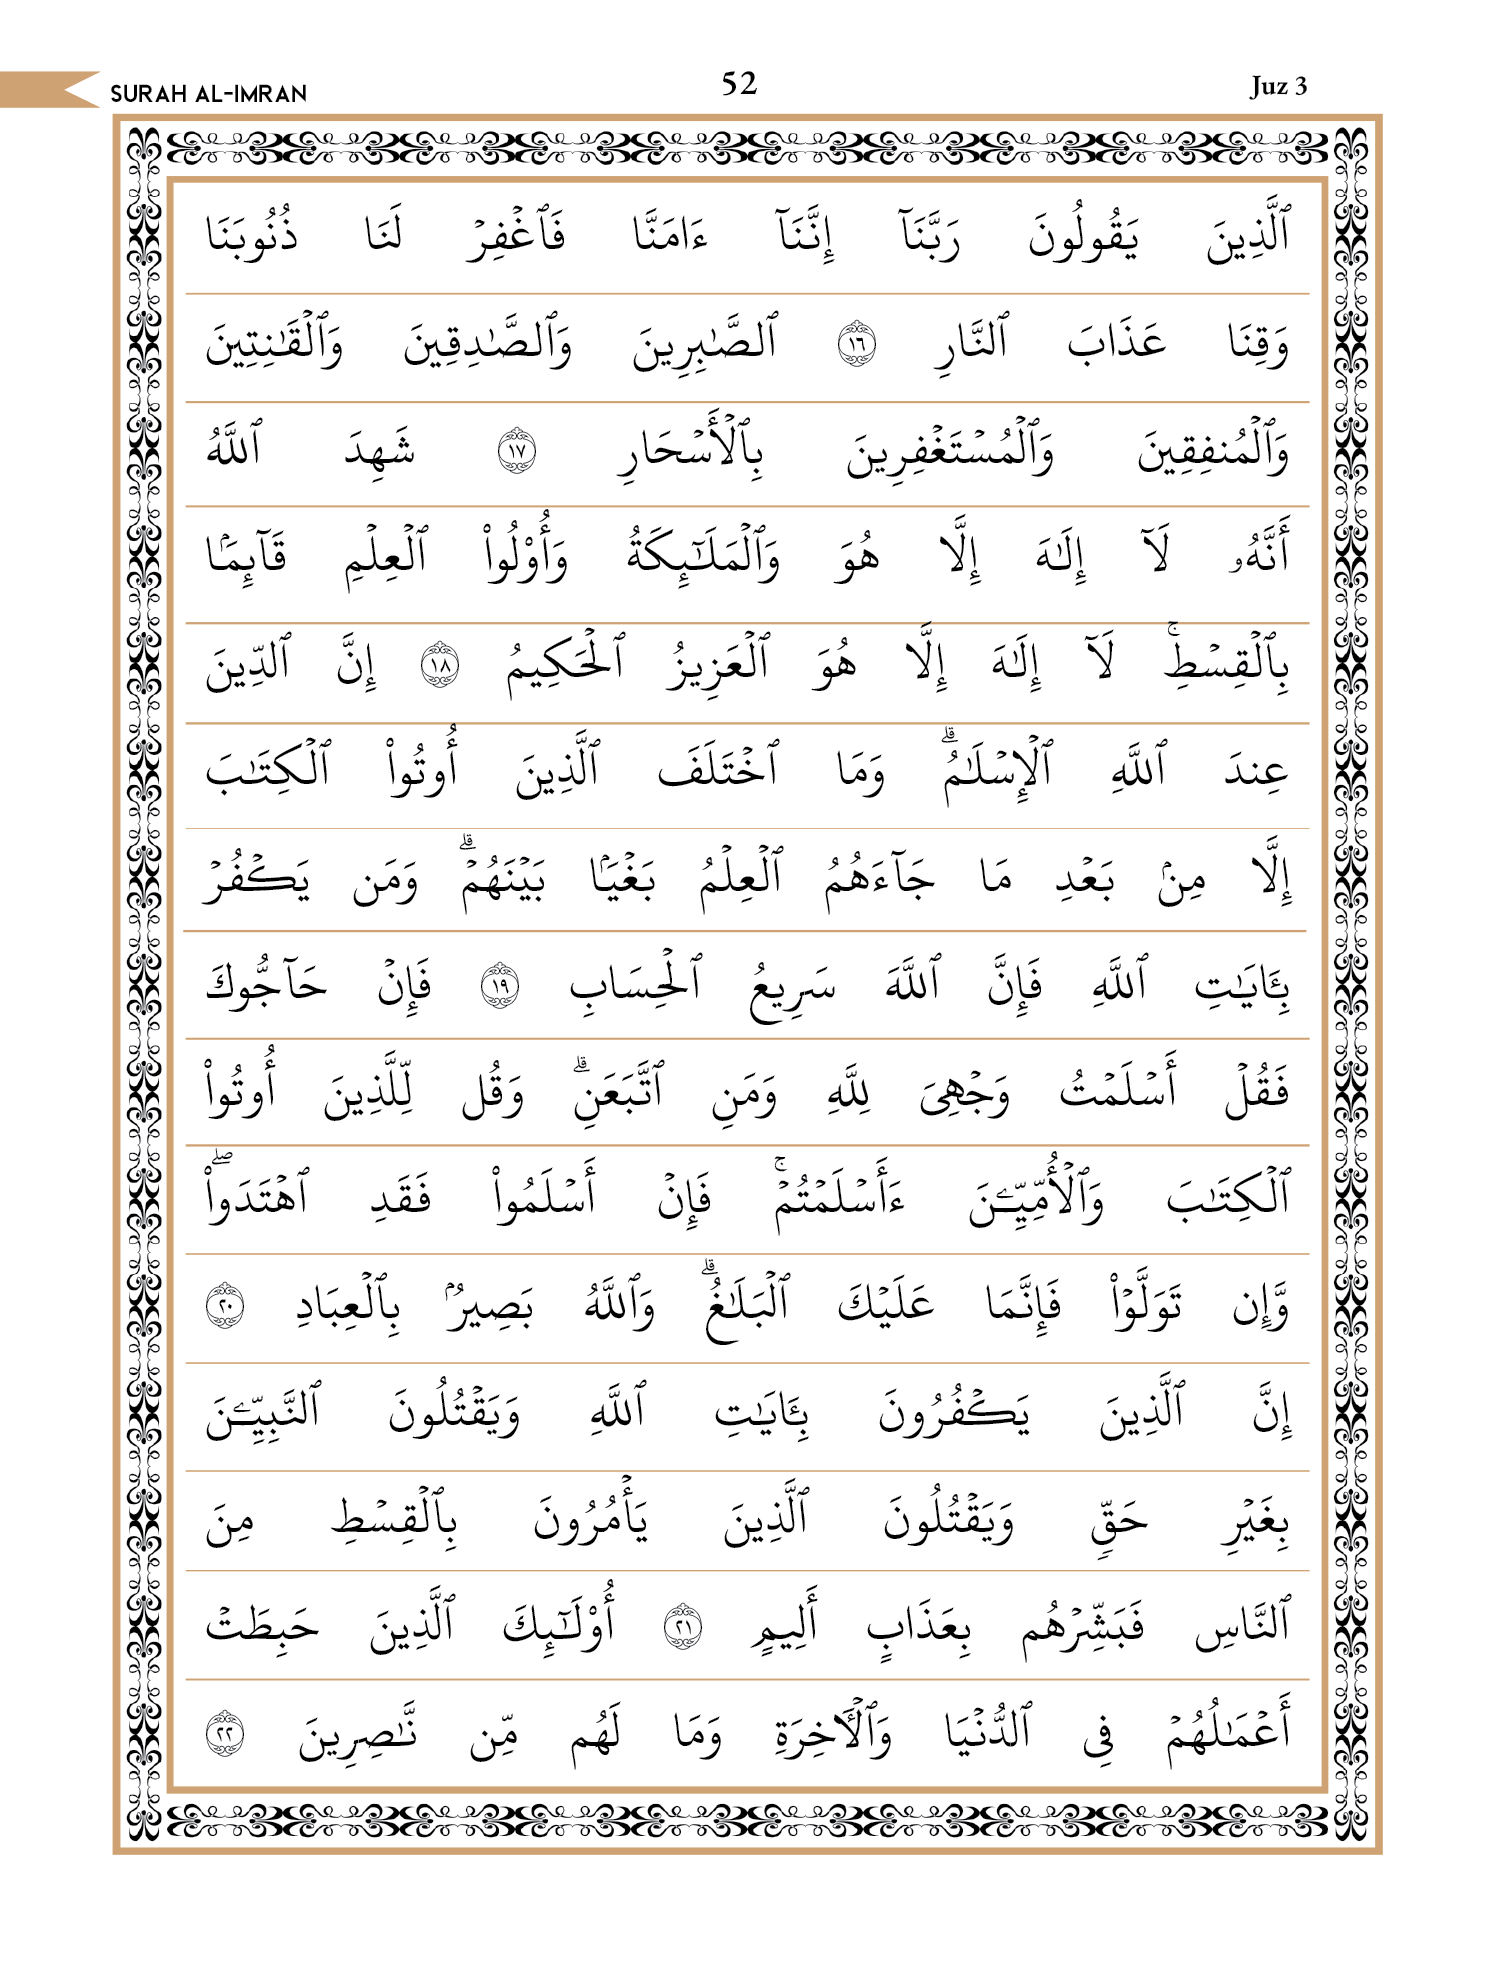 SURAH AL-IMRAN 52 Juz 3
ٱلَّذِينَ يَقُولُونَ رَبَّنَآ إِنَّنَآ ءَامَنَّا فَٱغْفِرْ لَنَا ذُنُوبَنَا
وَقِنَا عَذَابَ ٱلنَّارِ ١٦ ٱلصَّٰبِرِينَ وَٱلصَّٰدِقِينَ وَٱلْقَٰنِتِينَ
وَٱلْمُنفِقِينَ وَٱلْمُسْتَغْفِرِينَ بِٱلْأَسْحَارِ ١٧ شَهِدَ ٱللَّهُ
أَنَّهُۥ لَآ إِلَٰهَ إِلَّا هُوَ وَٱلْمَلَٰٓئِكَةُ وَأُو۟لُوا۟ ٱلْعِلْمِ قَآئِمَۢا
بِٱلْقِسْطِ ۚ لَآ إِلَٰهَ إِلَّا هُوَ ٱلْعَزِيزُ ٱلْحَكِيمُ ١٨ إِنَّ ٱلدِّينَ
عِندَ ٱللَّهِ ٱلْإِسْلَٰمُ ۗ وَمَا ٱخْتَلَفَ ٱلَّذِينَ أُوتُوا۟ ٱلْكِتَٰبَ
إِلَّا مِنۢ بَعْدِ مَا جَآءَهُمُ ٱلْعِلْمُ بَغْيَۢا بَيْنَهُمْ ۗ وَمَن يَكْفُرْ
بِـَٔايَٰتِ ٱللَّهِ فَإِنَّ ٱللَّهَ سَرِيعُ ٱلْحِسَابِ ١٩ فَإِنْ حَآجُّوكَ
فَقُلْ أَسْلَمْتُ وَجْهِىَ لِلَّهِ وَمَنِ ٱتَّبَعَنِ ۗ وَقُل لِّلَّذِينَ أُوتُوا۟
ٱلْكِتَٰبَ وَٱلْأُمِّيِّـۧنَ ءَأَسْلَمْتُمْ ۚ فَإِنْ أَسْلَمُوا۟ فَقَدِ ٱهْتَدَوا۟ ۖ
وَّإِن تَوَلَّوْا۟ فَإِنَّمَا عَلَيْكَ ٱلْبَلَٰغُ ۗ وَٱللَّهُ بَصِيرٌۢ بِٱلْعِبَادِ ٢٠
إِنَّ ٱلَّذِينَ يَكْفُرُونَ بِـَٔايَٰتِ ٱللَّهِ وَيَقْتُلُونَ ٱلنَّبِيِّـۧنَ
بِغَيْرِ حَقٍّ وَيَقْتُلُونَ ٱلَّذِينَ يَأْمُرُونَ بِٱلْقِسْطِ مِنَ
ٱلنَّاسِ فَبَشِّرْهُم بِعَذَابٍ أَلِيمٍ ٢١ أُو۟لَٰٓئِكَ ٱلَّذِينَ حَبِطَتْ
أَعْمَٰلُهُمْ فِى ٱلدُّنْيَا وَٱلْـَٔاخِرَةِ وَمَا لَهُم مِّن نَّٰصِرِينَ ٢٢